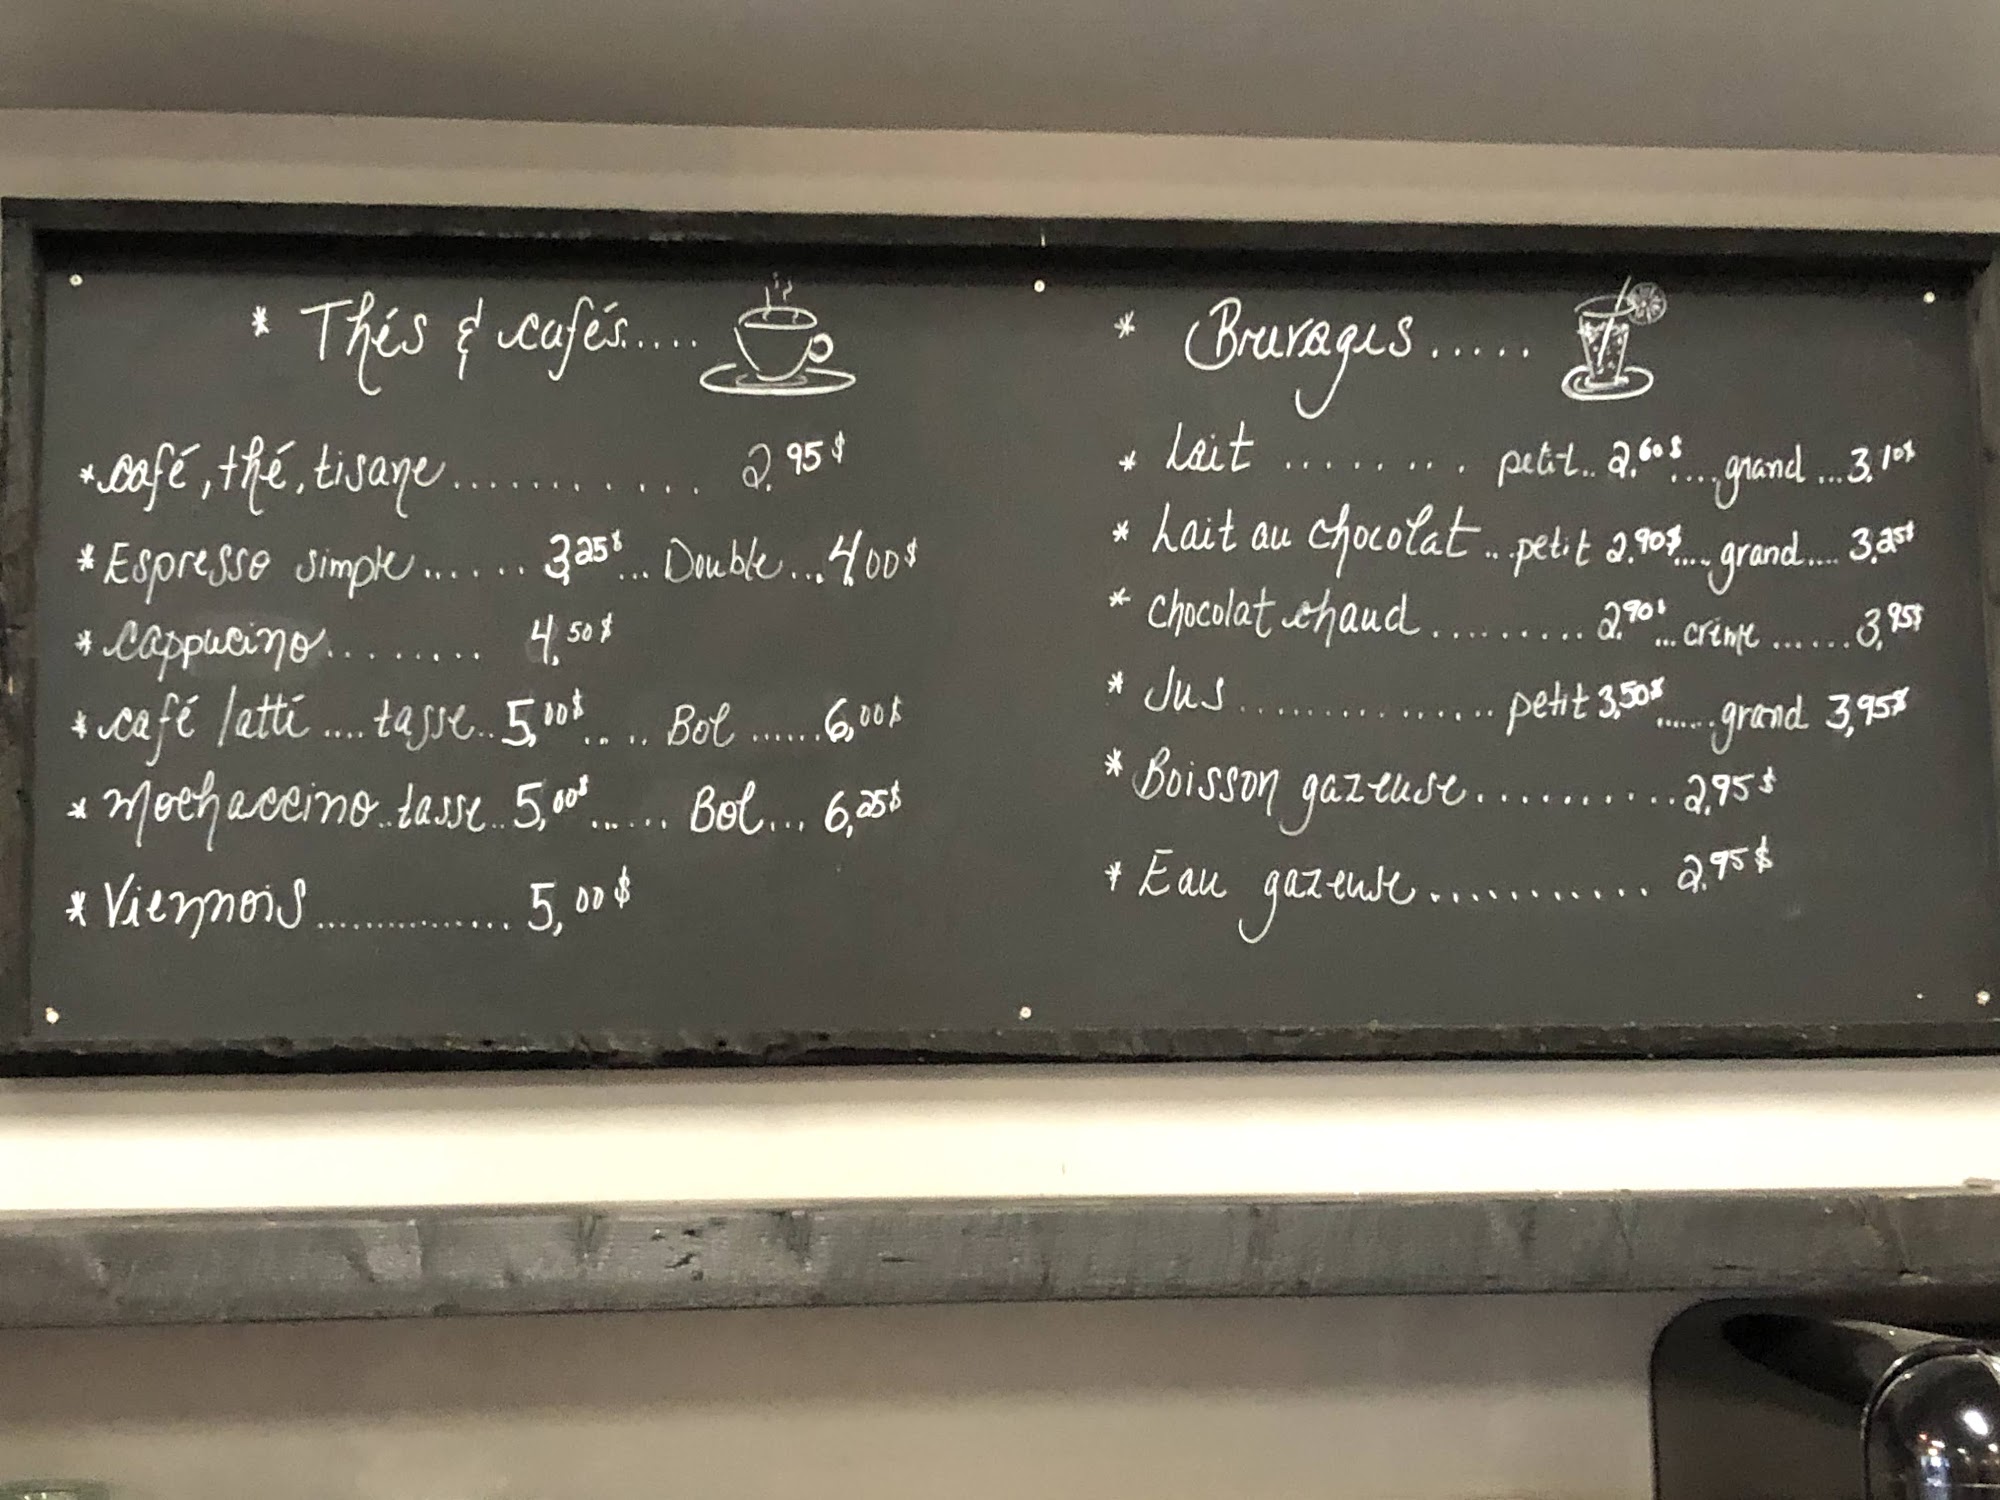 * Thés & cafés.....
*café, thé, tisane............ 2.95$
*Espresso simple...... 3,25$... Double...4.00$
*Cappucino........ 4,50$
*café latté .... tasse..5,00$..... Bol ......6,00$
*Mochaccino..tasse..5,00$...... Bol... 6,25$
*Viennois.............. 5,00$
* Breuvages.....
* Lait ........ petit.. 2.60$....grand ...3.10$
* Lait au chocolat ..petit 2.90$.... grand.... 3,25$
* Chocolat chaud......... 2,90$ ...crème ......3,95$
* Jus.............. petit 3,50$......grand 3,95$
* Boisson gazeuse..........2,95$
* Eau gazeuse........... 2.95$